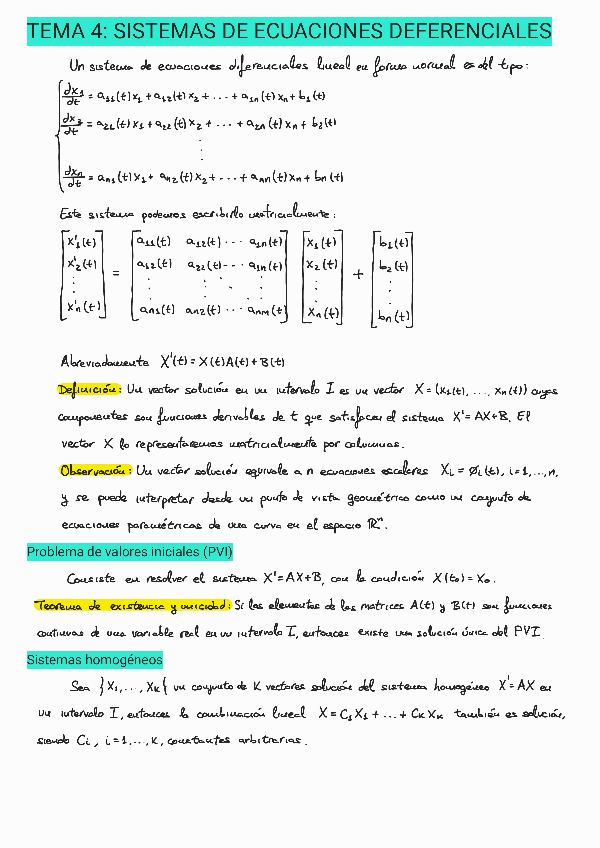 TEMA 4: SISTEMAS DE ECUACIONES DEFERENCIALES
Un sistema de ecuaciones diferenciales lineal en forma normal es del tipo:
dx₁/dt = a₁₁(t)x₁ + a₁₂(t)x₂ + ... + a₁ₙ(t)xₙ + b₁(t)
dx₂/dt = a₂₁(t)x₁ + a₂₂(t)x₂ + ... + a₂ₙ(t)xₙ + b₂(t)
⋮
dxₙ/dt = aₙ₁(t)x₁ + aₙ₂(t)x₂ + ... + aₙₙ(t)xₙ + bₙ(t)
Este sistema podemos escribirlo matricialmente:
[x'₁(t)] [a₁₁(t) a₁₂(t) ... a₁ₙ(t)] [x₁(t)] [b₁(t)]
[x'₂(t)] = [a₁₂(t) a₂₂(t) ... a₂ₙ(t)] [x₂(t)] + [b₂(t)]
⋮ ⋮ ⋮ ⋮
[x'ₙ(t)] [aₙ₁(t) aₙ₂(t) ... aₙₘ(t)] [xₙ(t)] [bₙ(t)]
Abreviadamente X'(t) = X(t)A(t) + B(t)
Definición: Un vector solución en un intervalo I es un vector X = (x₁(t), ..., xₙ(t)) cuyas
componentes son funciones derivables de t que satisfacen el sistema X' = AX+B. El
vector X lo representaremos matricialmente por columnas.
Observación: Un vector solución equivale a n ecuaciones escalares Xᵢ = Øᵢ(t), i=1,...,n,
y se puede interpretar desde un punto de vista geométrico como un conjunto de
ecuaciones paramétricas de una curva en el espacio ℝⁿ.
Problema de valores iniciales (PVI)
Consiste en resolver el sistema X' = AX+B, con la condición X(t₀) = X₀.
Teorema de existencia y unicidad: Si los elementos de las matrices A(t) y B(t) son funciones
continuas de una variable real en un intervalo I, entonces existe una solución única del PVI.
Sistemas homogéneos
Sea }X₁, ..., Xₖ{ un conjunto de K vectores solución del sistema homogéneo X' = AX en
un intervalo I, entonces la combinación lineal X = C₁X₁ + ... + CₖXₖ también es solución,
siendo Cᵢ, i=1,...,K, constantes arbitrarias.